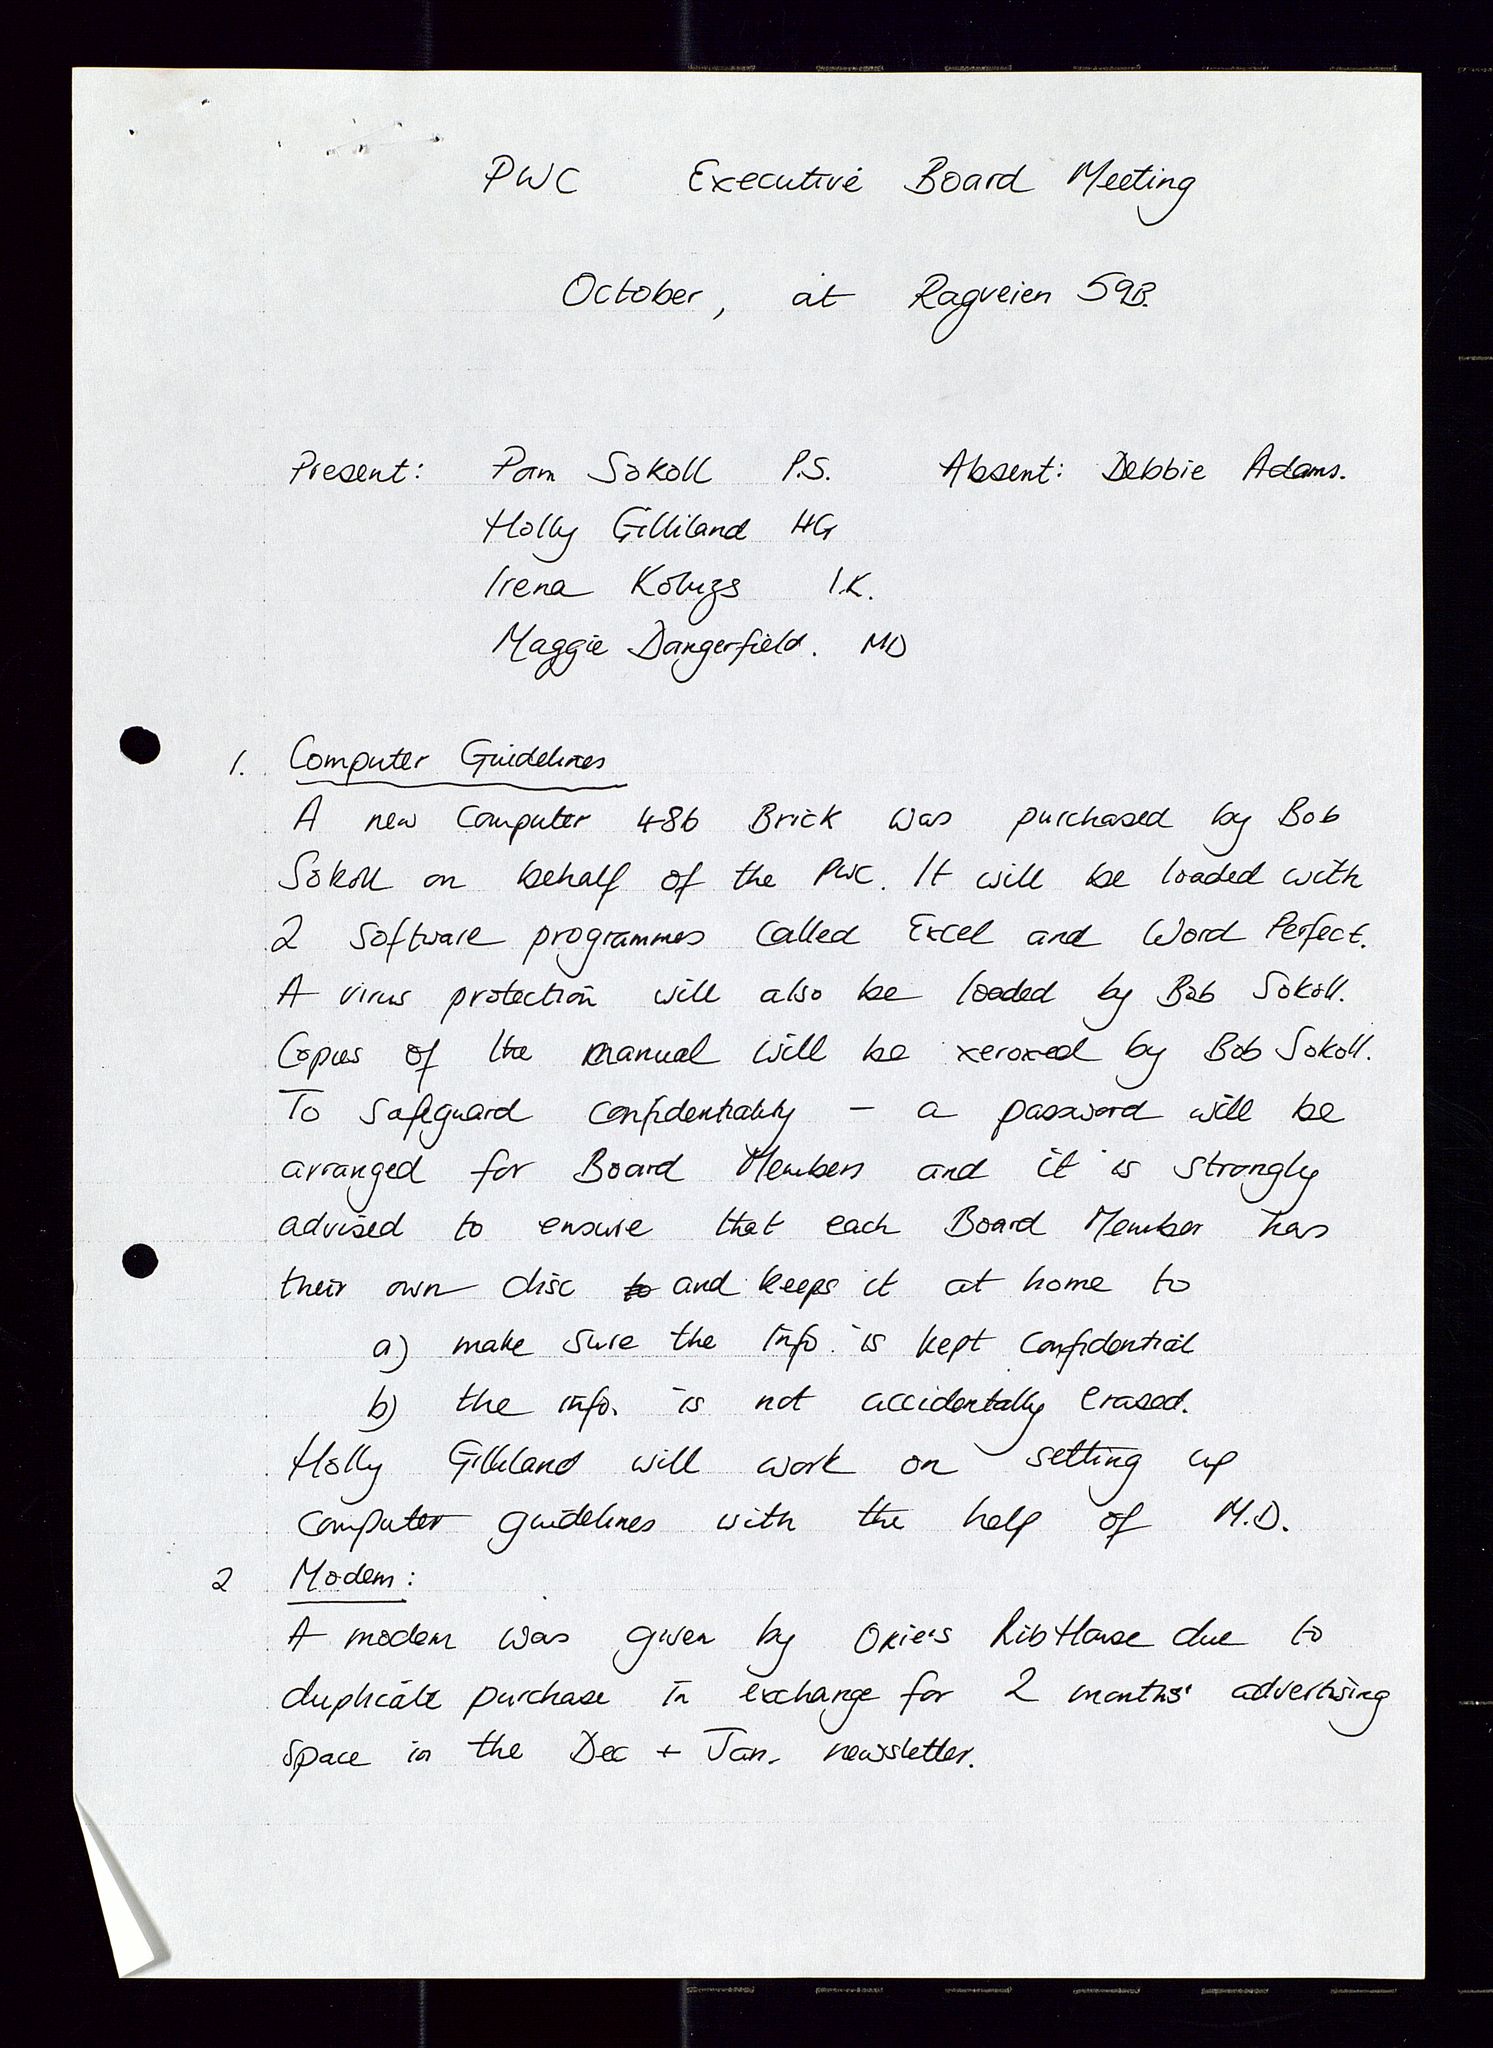 PWC Executive Board Meeting
October, at Ragveien 59B.
Present: Pam Sokoll P.S. Absent: Debbie Adams.
Holly Gilliland HG
Irena I.K.
Maggie Dangerfield. MD
1. Computer Guidelines
A new Computer 486 Brick was purchased by Bob
Sokoll on behalf of the PWC. It will be loaded with
2 software programmes called Excel and Word Perfect.
A virus protection will also be loaded by Bob Sokoll.
Copies of the manual will be xeroxed by Bob Sokoll.
To safeguard confidentiality – a password will be
arranged for Board Members and it is strongly
advised to ensure that each Board Member has
their own disc to and keeps it at home to
a) make sure the info. is kept confidential
b) the info. is not accidentally erased.
Holly Gilliland will work on setting up
computer guidelines with the help of M.D.
2 Modem:
A modem was given by Okie's RibHouse due to
duplicate purchase in exchange for 2 months' advertising
space in the Dec + Jan. newsletter.